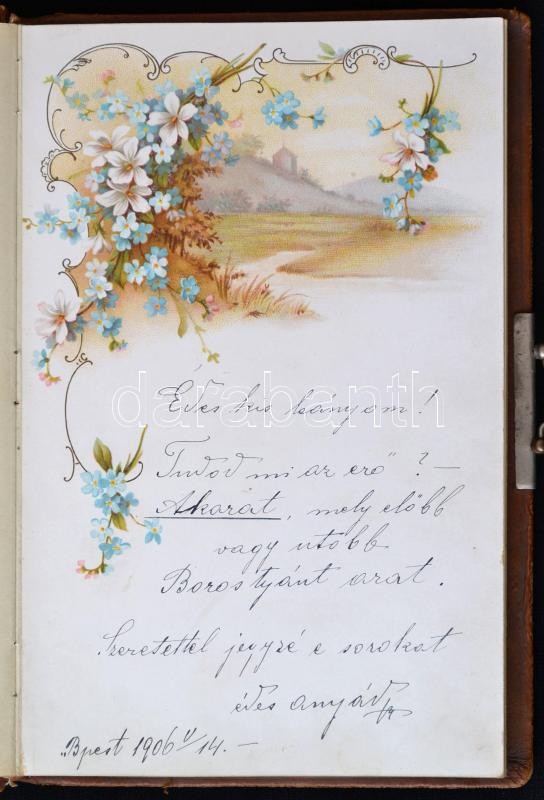 Édes kis lányom!
Tudod mi az erő"? —
Akarat, mely előbb
vagy utóbb
Borostyánt arat.
Szeretettel jegyzé e sorokat
édes anyád
Bpest 1906 V/14. —
darabanth